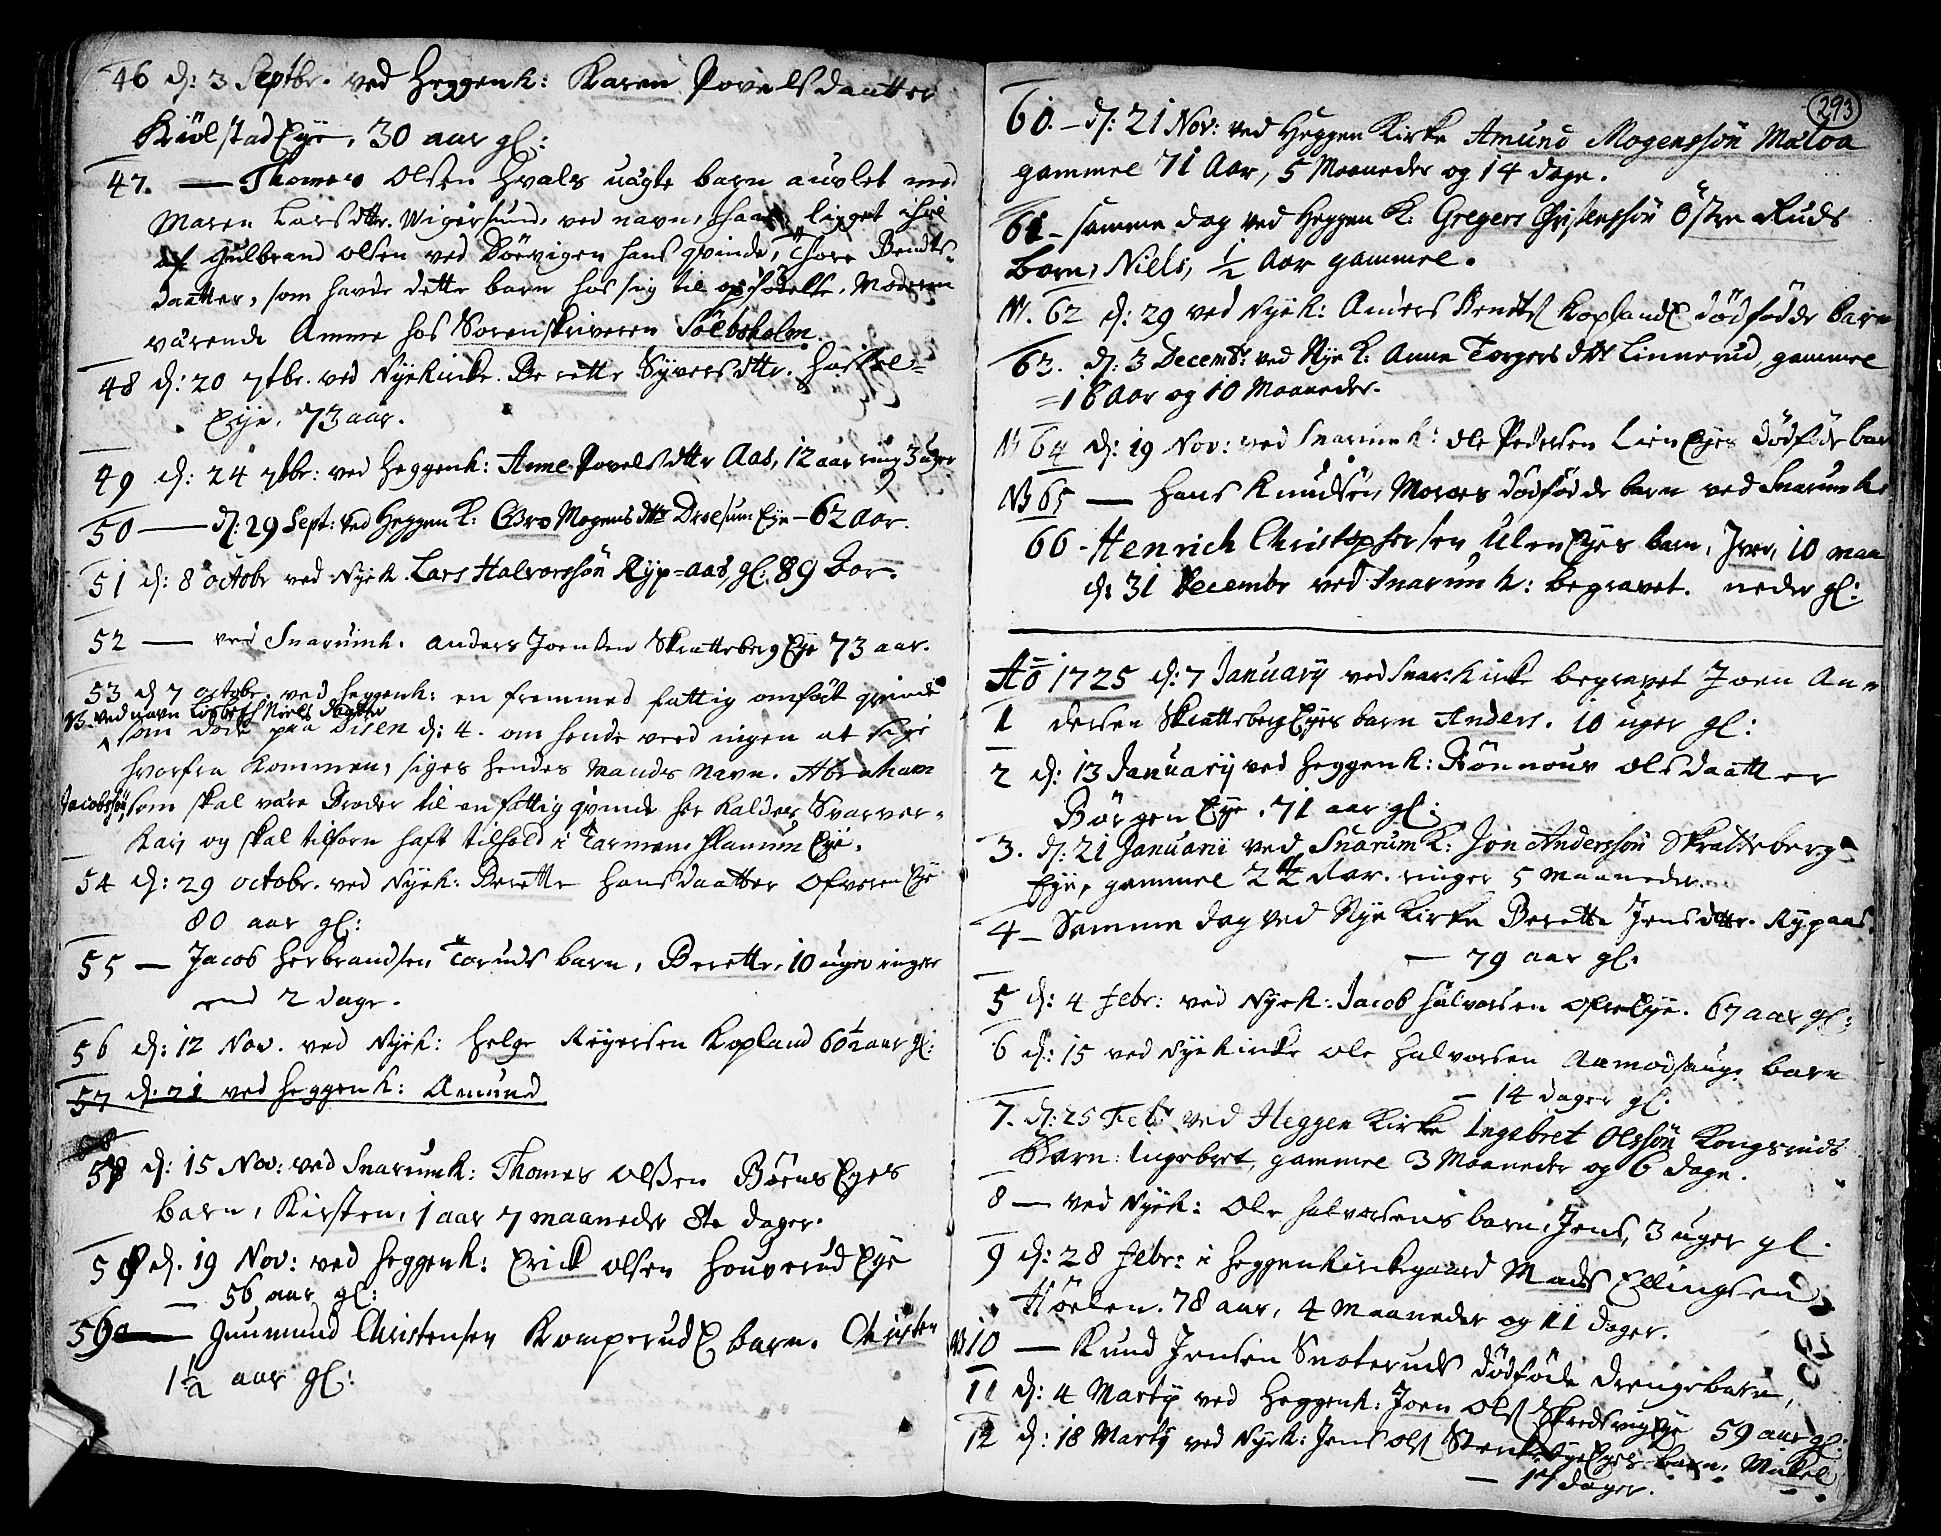 46 d: 3 Septbr. ved Heggenk: Karen Povelsdaatter
Kiølstad Eye, 30 aar gl:
47. — Thomas Olsen Hvals uægte barn auvlet med
Maren Larsdttr. Wigersund, ved navn,
af Gulbrand Olsen ved Döevigen hans qvinde, Thore Bendts-
daatter, som havde dette barn hos sig til opfödelse, Moderen
værende Amme hos Sorenskriveren Söebsholm.
48 d: 20 7tbr. ved Nyekirke. Berette Syversdttr.
Eye, 73 aar.
49 d: 24 7tbr: ved Heggenk: Anne Povelsdttr Aas, 12 aar ring 3 uger
50 — d: 29 Sept: ved Heggen K: Gro Mogensdttr Drolsum Eye - 62 Aar.
51 d: 8 octobr ved Nyek. Lars Halvorssön Ryp=aas, gl: 89 Aar.
52 — ved Snarumk. Anders Joensen Skratteberg Eye 73 aar.
53 d 7 octobr. ved Heggenk: en fremmed fattig omført qvinde
NB. ved navn Lisbeth Niels daatter
som döde paa Disen d: 4. om hende veed ingen at sige
hvorfra kommen, siges hendes Mands navn. Abraham
Jacobssøn, som skal være Broder til en fattig qvinde her kaldes Svarver-
Kari, og skal tilforn haft tilhold i Tarmens Flanum Eye.
54 d: 29 octobr. ved Nyek: Berette Hansdaatter Ofveren Eye
80 aar gl:
55 — Jacob Herbrandsen Toruds barn, Berette, 10 uger ringer
end 2 dage.
56 d: 12 Nov. ved Nyek: Helge Reyersen Kopland 60 1/2 aar gl:
57 d: 21 ved Heggenk: Amund
58 d: 15 Nov: ved Snarumk: Thomas Olssen Böens Eyes
barn, Kirsten, 1 aar 7 maaneder 8te dager.
59 d. 19 Nov: ved Heggenk: Erick Olsen Houverud Eye
— 56 aar gl:
59a — Gunmund Christensen Komperud E barn. Christen
1 1/2 aar gl:
293
60. — d: 21 Nov: ved Heggen Kirke Amund Mogenssön Maloa
gammel 71 Aar, 5 Maaneder og 14 dage.
61 - samme dag ved Heggen K: Gregers Christenssön Östre Ruds
Barn, Niels, 1/2 Aar gammel.
N. 62 d: 29 ved Nyek: Anders Bendts Kopland E dödfödde barn
63. d: 3 Decembr. ved Nye K: Anne Torgersdttr Linnerud, gammel
=16 Aar og 10 Maaneder.
N 64 d: 19 Nov: ved Snarumk: Ole Pedersen Lien Eyes dödföde barn
NB 65 — Hans Knudsen, Moraes dödfödde barn ved Snarumk.
66 - Henrich Christophersen Ulen Eyes barn, Iver, 10 maa
d: 31 Decembr ved Snarumk: begravet. neder gl:
Aō 1725 d: 7 January ved Snar: kirke begravet Joen An-
1 dersen Skratteberg Eyes barn Anders. 10 uger gl:
2 d: 13 January ved Heggenk: Rönnouv Olsdaatter
Börgen Eye. 71 aar gl:
3. d: 21 Januarii ved Snarum K: Jon Anderssön Skratteberg-
Eye, gammel Aar. ringer 5 maaneder.
4 — Samme dag ved Nye Kirke Berette Jensdttr. Rypaas.
— 79 aar gl:
5 d: 4 Febr: ved Nyek: Jacob Halvorsen Ofre Eye. 67 aar gl:
6 d: 15 ved Nyekirke Ole Halvorsen Aamodhaugs barn
— 14 dager gl:
7. d: 25 Febr ved Heggen Kirke Ingebret Olssön Kongsruds
Barn: Ingebret, gammel 3 Maaneder og 6 dage.
8 — ved Nyek: Ole Halvorsens barn, Jens, 3 uger gl.
9 d: 28 Febr: i Heggenkirkegaard Mads Ellingsen
Höelen. 78 aar, 4 maaneder og 11 dager.
NB 10 — Knud Jensen Snoteruds dödföde drengebarn,
11 d: 4 Marty ved Heggenk: Joen Ols Skredsvig Eye 59 aar gl:
12 d: 18 Marty ved Nyek: Jens Ols Eyes barn. Mickel
— 14 dager.